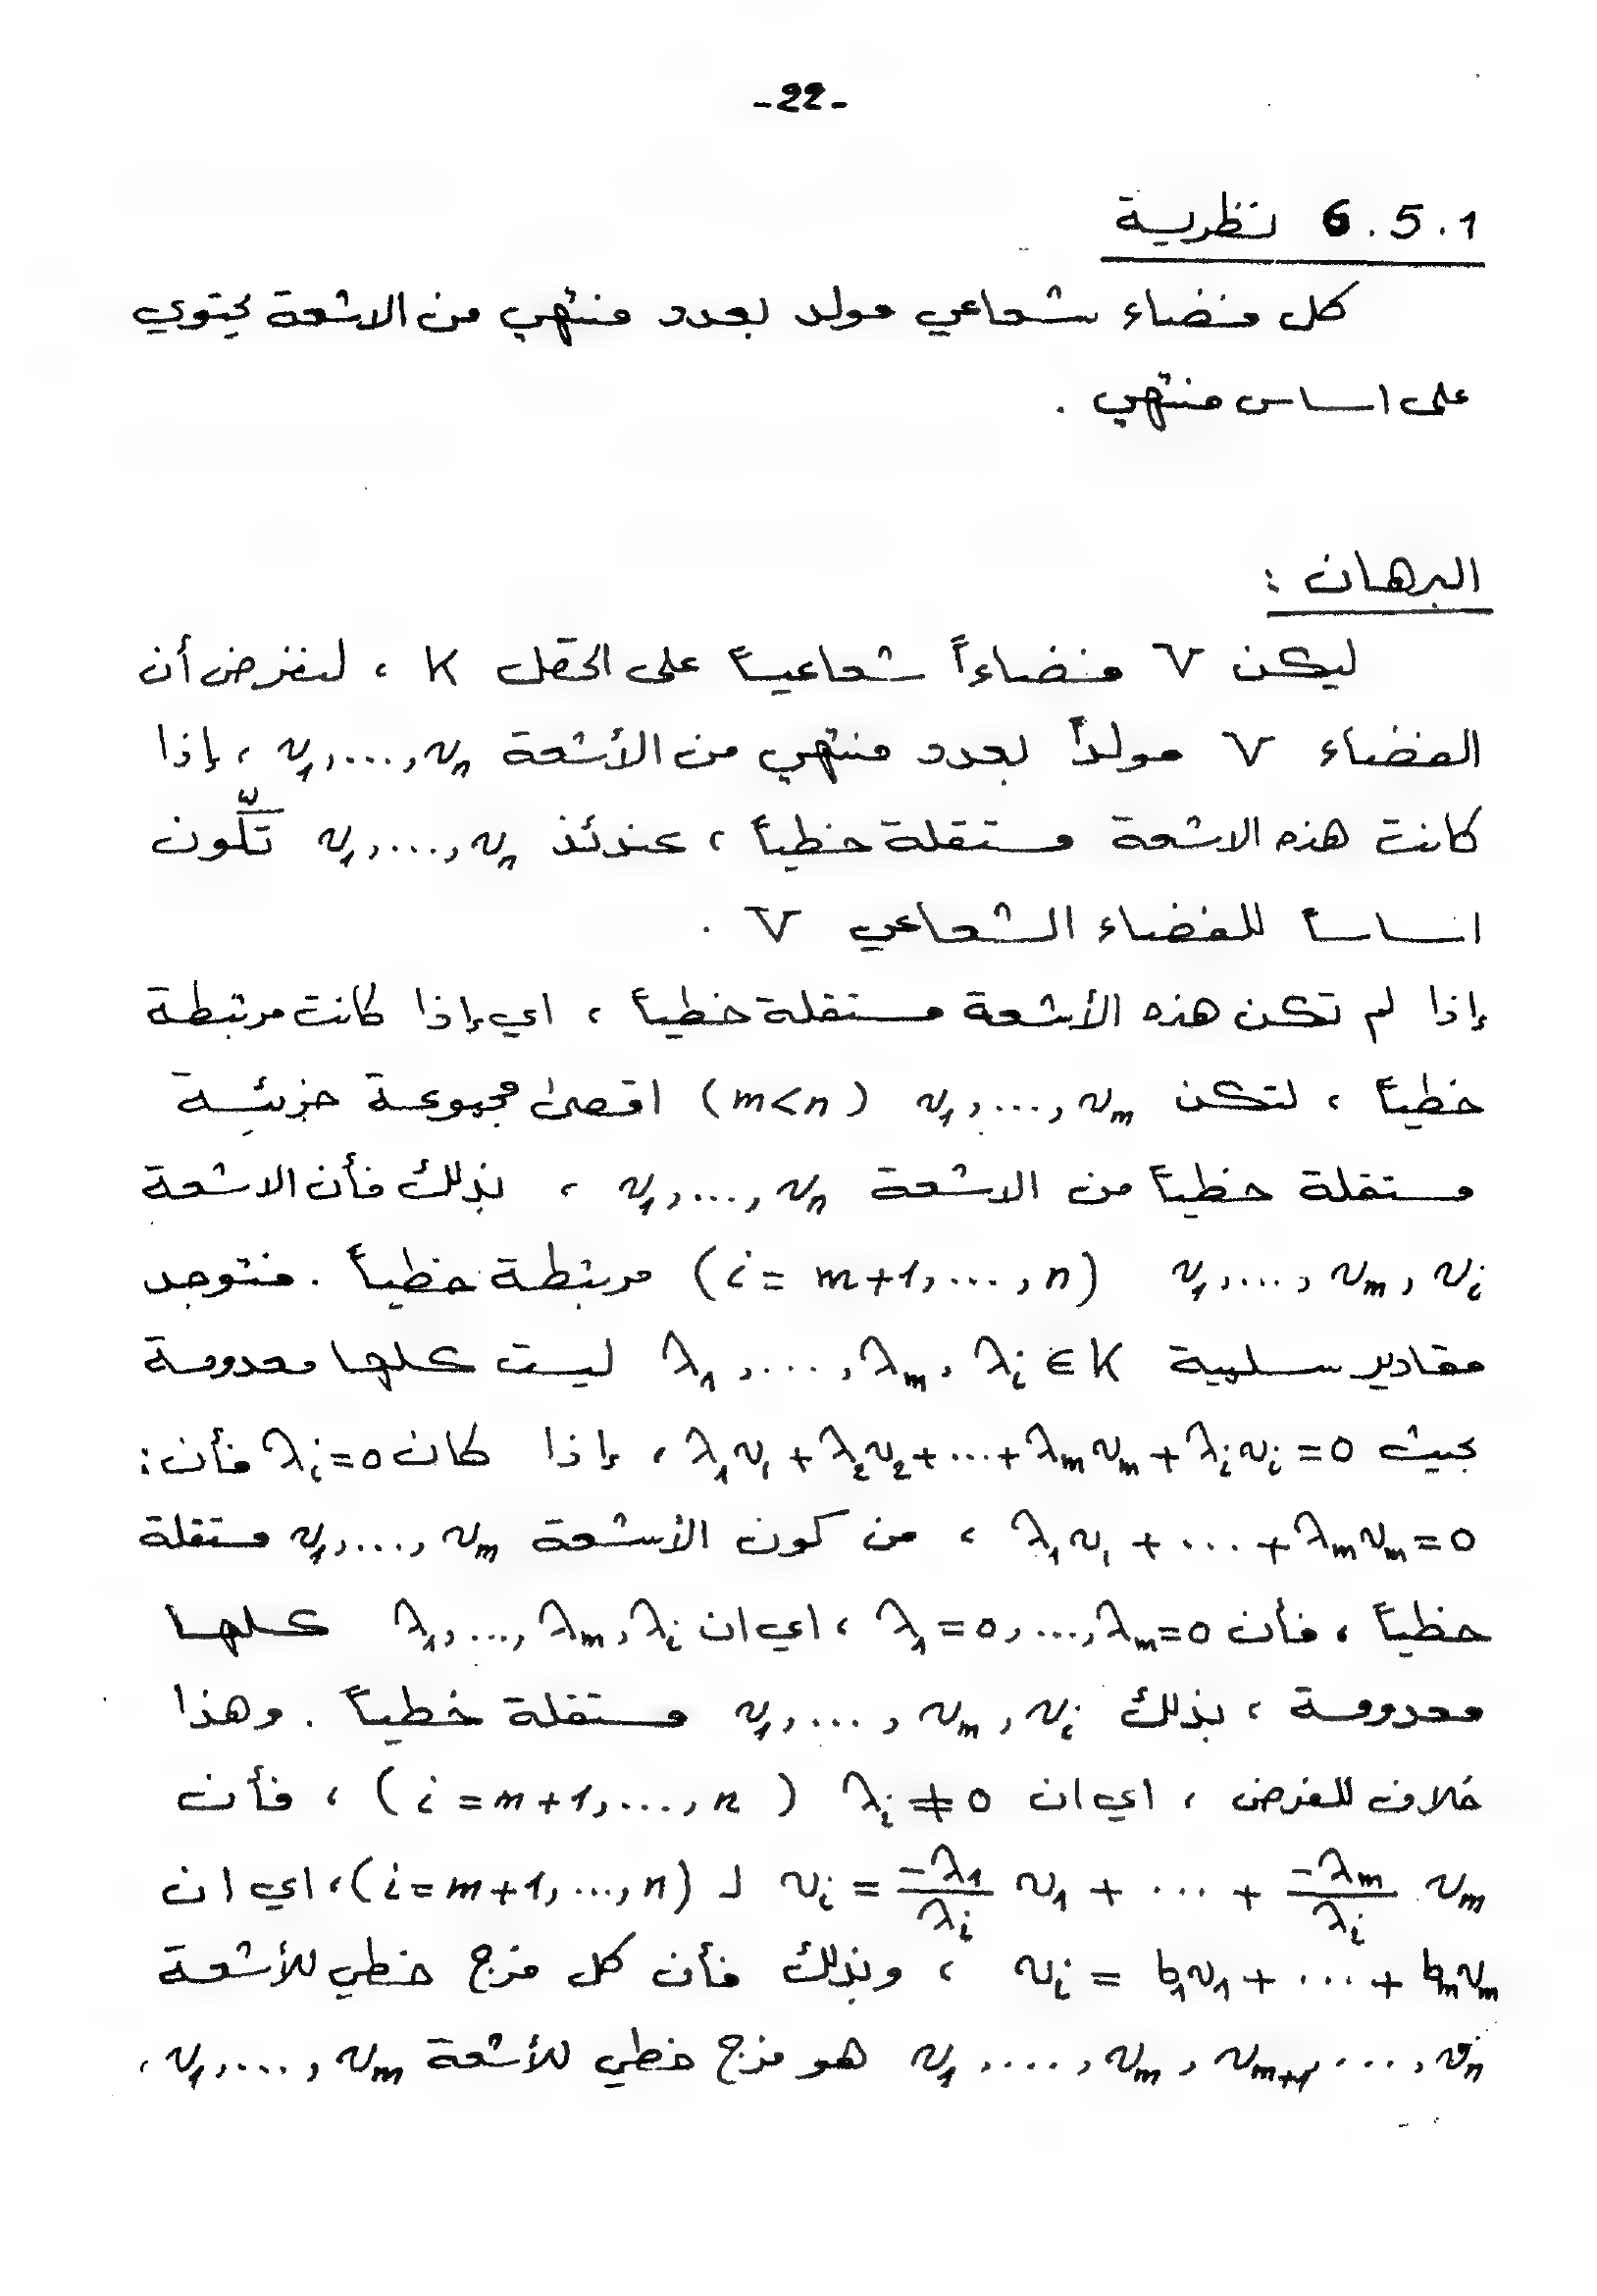 -22-
6.5.1 نظرية
كل فضاء شعاعي مولد بعدد منتهي من الاشعة يحتوي
على اساس منتهي .
البرهان :
ليكن V فضاءاً شعاعياً على الحقل K ، لنفرض أن
الفضاء V مولداً بعدد منتهي من الأشعة v₁,...,vₙ ، إذا
كانت هذه الاشعة مستقلة خطياً ، عندئذ v₁,...,vₙ تكّون
اساساً للفضاء الشعاعي V .
إذا لم تكن هذه الأشعة مستقلة خطياً ، اي إذا كانت مرتبطة
خطياً ، لتكن v₁,...,vₘ (m<n) اقصى مجموعة جزئية
مستقلة خطياً من الاشعة v₁,...,vₙ ، بذلك فأن الاشعة
v₁,...,vₘ,vᵢ (i = m+1,...,n) مرتبطة خطياً . فتوجد
مقادير سلمية λ₁,...,λₘ,λᵢ ∈ K ليست كلها معدومة
بحيث λ₁v₁ + λ₂v₂ + ... + λₘvₘ + λᵢvᵢ = 0 ، إذا كان λᵢ=0 فأن :
λ₁v₁ + ... + λₘvₘ = 0 ، من كون الأشعة v₁,...,vₘ مستقلة
خطياً ، فأن λ₁=0,...,λₘ=0 ، اي ان λ₁,...,λₘ,λᵢ كلها
معدومة ، بذلك v₁,...,vₘ,vᵢ مستقلة خطياً . وهذا
خلاف للفرض ، اي ان λᵢ ≠ 0 (i = m+1,...,n) ، فأن
vᵢ = -λ₁/λᵢ v₁ + ... + -λₘ/λᵢ vₘ لـ (i = m+1,...,n) ، اي ان
vᵢ = b₁v₁ + ... + bₘvₘ ، وبذلك فأن كل مزج خطي للأشعة
v₁,...,vₘ,vₘ₊₁,...,vₙ هو مزج خطي للأشعة v₁,...,vₘ ،